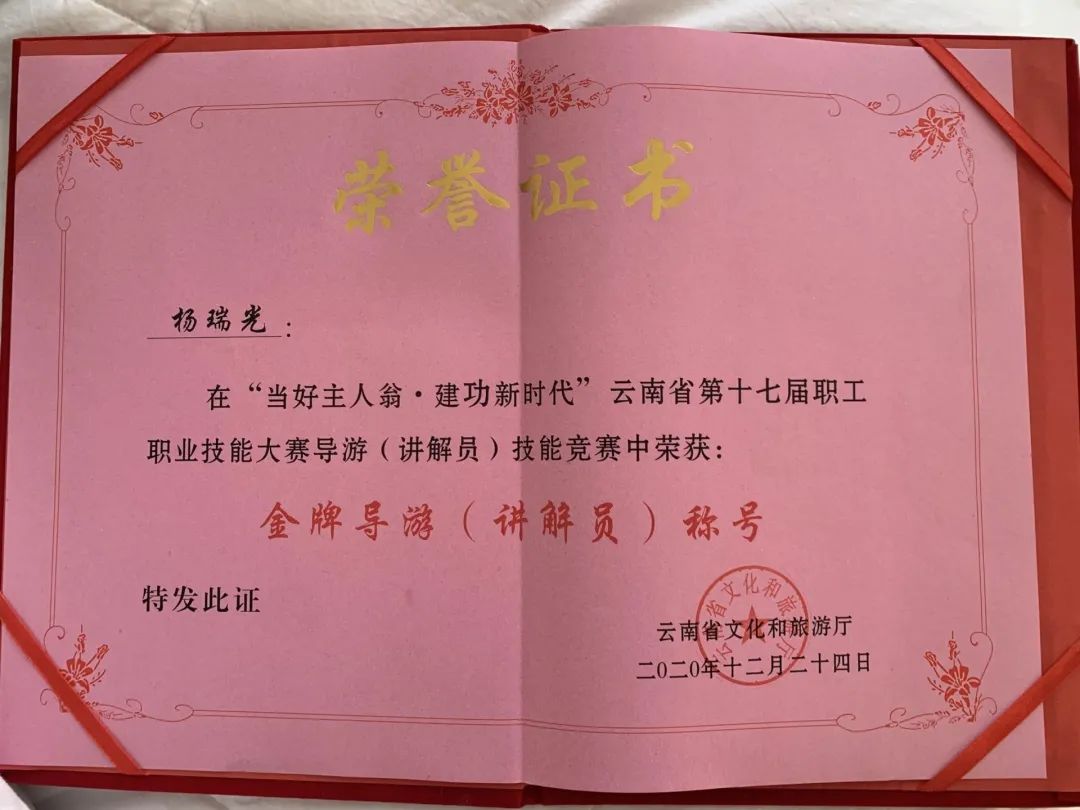 荣誉证书
杨瑞光：
在“当好主人翁·建功新时代”云南省第十七届职工
职业技能大赛导游（讲解员）技能竞赛中荣获：
金牌导游（讲解员）称号
特发此证
云南省文化和旅游厅
云南省文化和旅游厅
二〇二〇年十二月二十四日